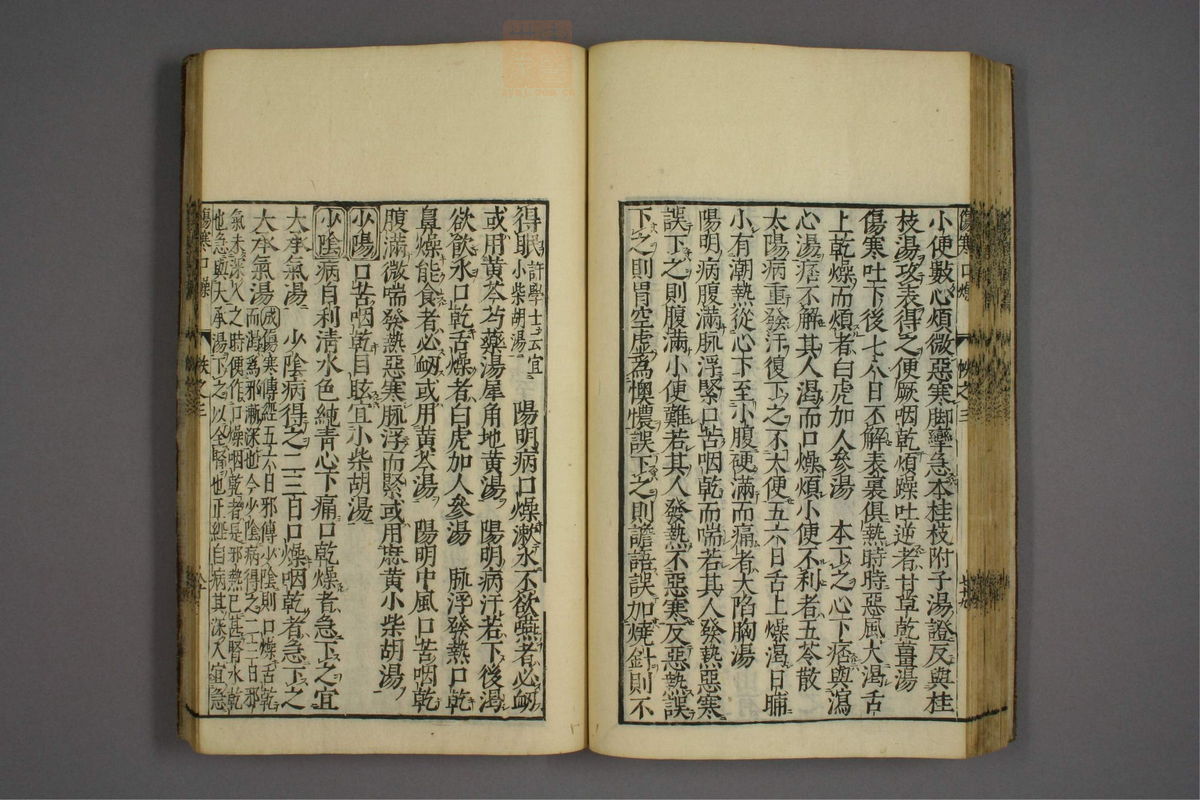 傷寒口燥 帙之三
小便數心煩微惡寒脚攣急本桂枝附子湯證反與桂
枝湯攻表得之便厥咽乾煩躁吐逆者甘草乾薑湯
傷寒吐下後七八日不解表裏俱熱時時惡風大渴舌
上乾燥而煩者白虎加人參湯 本下之心下痞與瀉
心湯痞不解其人渴而口燥煩小便不利者五苓散
太陽病重發汗復下之不大便五六日舌上燥渴日晡
小有潮熱從心下至小腹硬滿而痛者大陷胸湯
陽明病腹滿脉浮緊口苦咽乾而喘若其人發熱惡寒
誤下之則腹滿小便難若其人發熱不惡寒反惡熱誤
下之則胃空虛為懊憹誤下之則譫語誤加燒針則不
得眠許學士云宜小柴胡湯 陽明病口燥漱水不欲嚥者必衂
或用黄芩芍藥湯犀角地黄湯 陽明病汗若下後渴
欲飲水口乾舌燥者白虎加人參湯 脉浮發熱口乾
鼻燥能食者必衂或用黄芩湯 陽明中風口苦咽乾
腹滿微喘發熱惡寒脉浮而緊或用麻黄小柴胡湯
少陽口苦咽乾目眩宜小柴胡湯
少陰病自利清水色純青心下痛口乾燥者急下之宜
大承氣湯 少陰病得之二三日口燥咽乾者急下之
大承氣湯成傷寒傳經五六日邪傳少陰則口燥舌乾
而渴為邪漸深也今少陰病得之二三日邪
氣未深入之時便作口燥咽乾者是邪熱已甚腎水乾
也急與大承湯下之以全腎也正經自病其深入宜急
傷寒口燥 帙之三